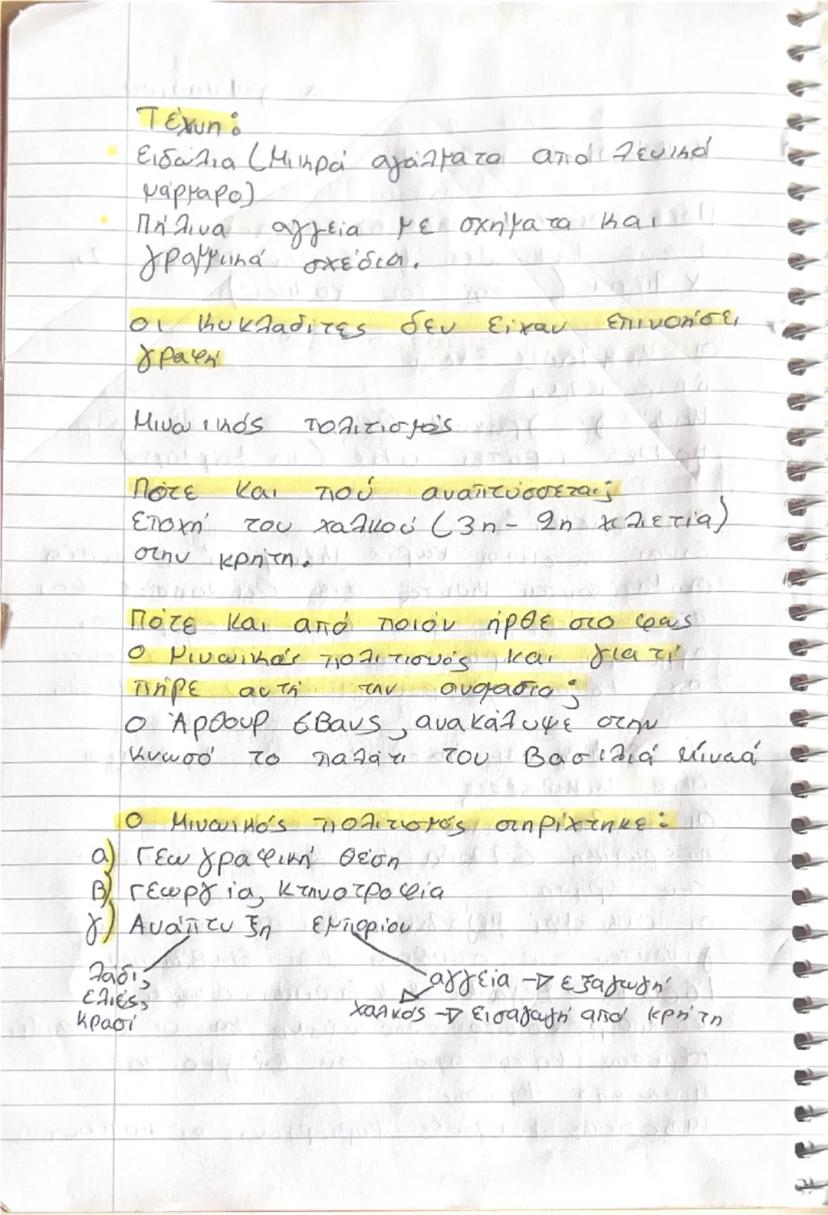 Τέχνη:
Ειδώλια (Μικρά αγάλματα από λευκό
μάρμαρο)
Πήλινα αγγεία με σχήματα και
γραμμικά σχέδια.
οι Κυκλαδίτες δεν είχαν επινοήσει
γραφή
Μινωικός πολιτισμός
Πότε και πού αναπτύσσεται;
Εποχή του χαλκού (3η - 2η χιλιετία)
στην κρήτη.
Πότε και από ποιόν ήρθε στο φως
ο Μινωικός πολιτισμός και γιατί
πήρε αυτή την ονομασία;
Ο Άρθουρ έβανς, ανακάλυψε στην
Κνωσό το παλάτι του Βασιλιά Μίνωά
Ο Μινωικός πολιτισμός στηρίχτηκε:
α) Γεωγραφική θέση
β) Γεωργία, κτηνοτροφία
γ) Ανάπτυξη εμπορίου
λάδι, αγγεία → εξαγωγή
ελιές, χαλκός → εισαγαγή από κρήτη
κρασί